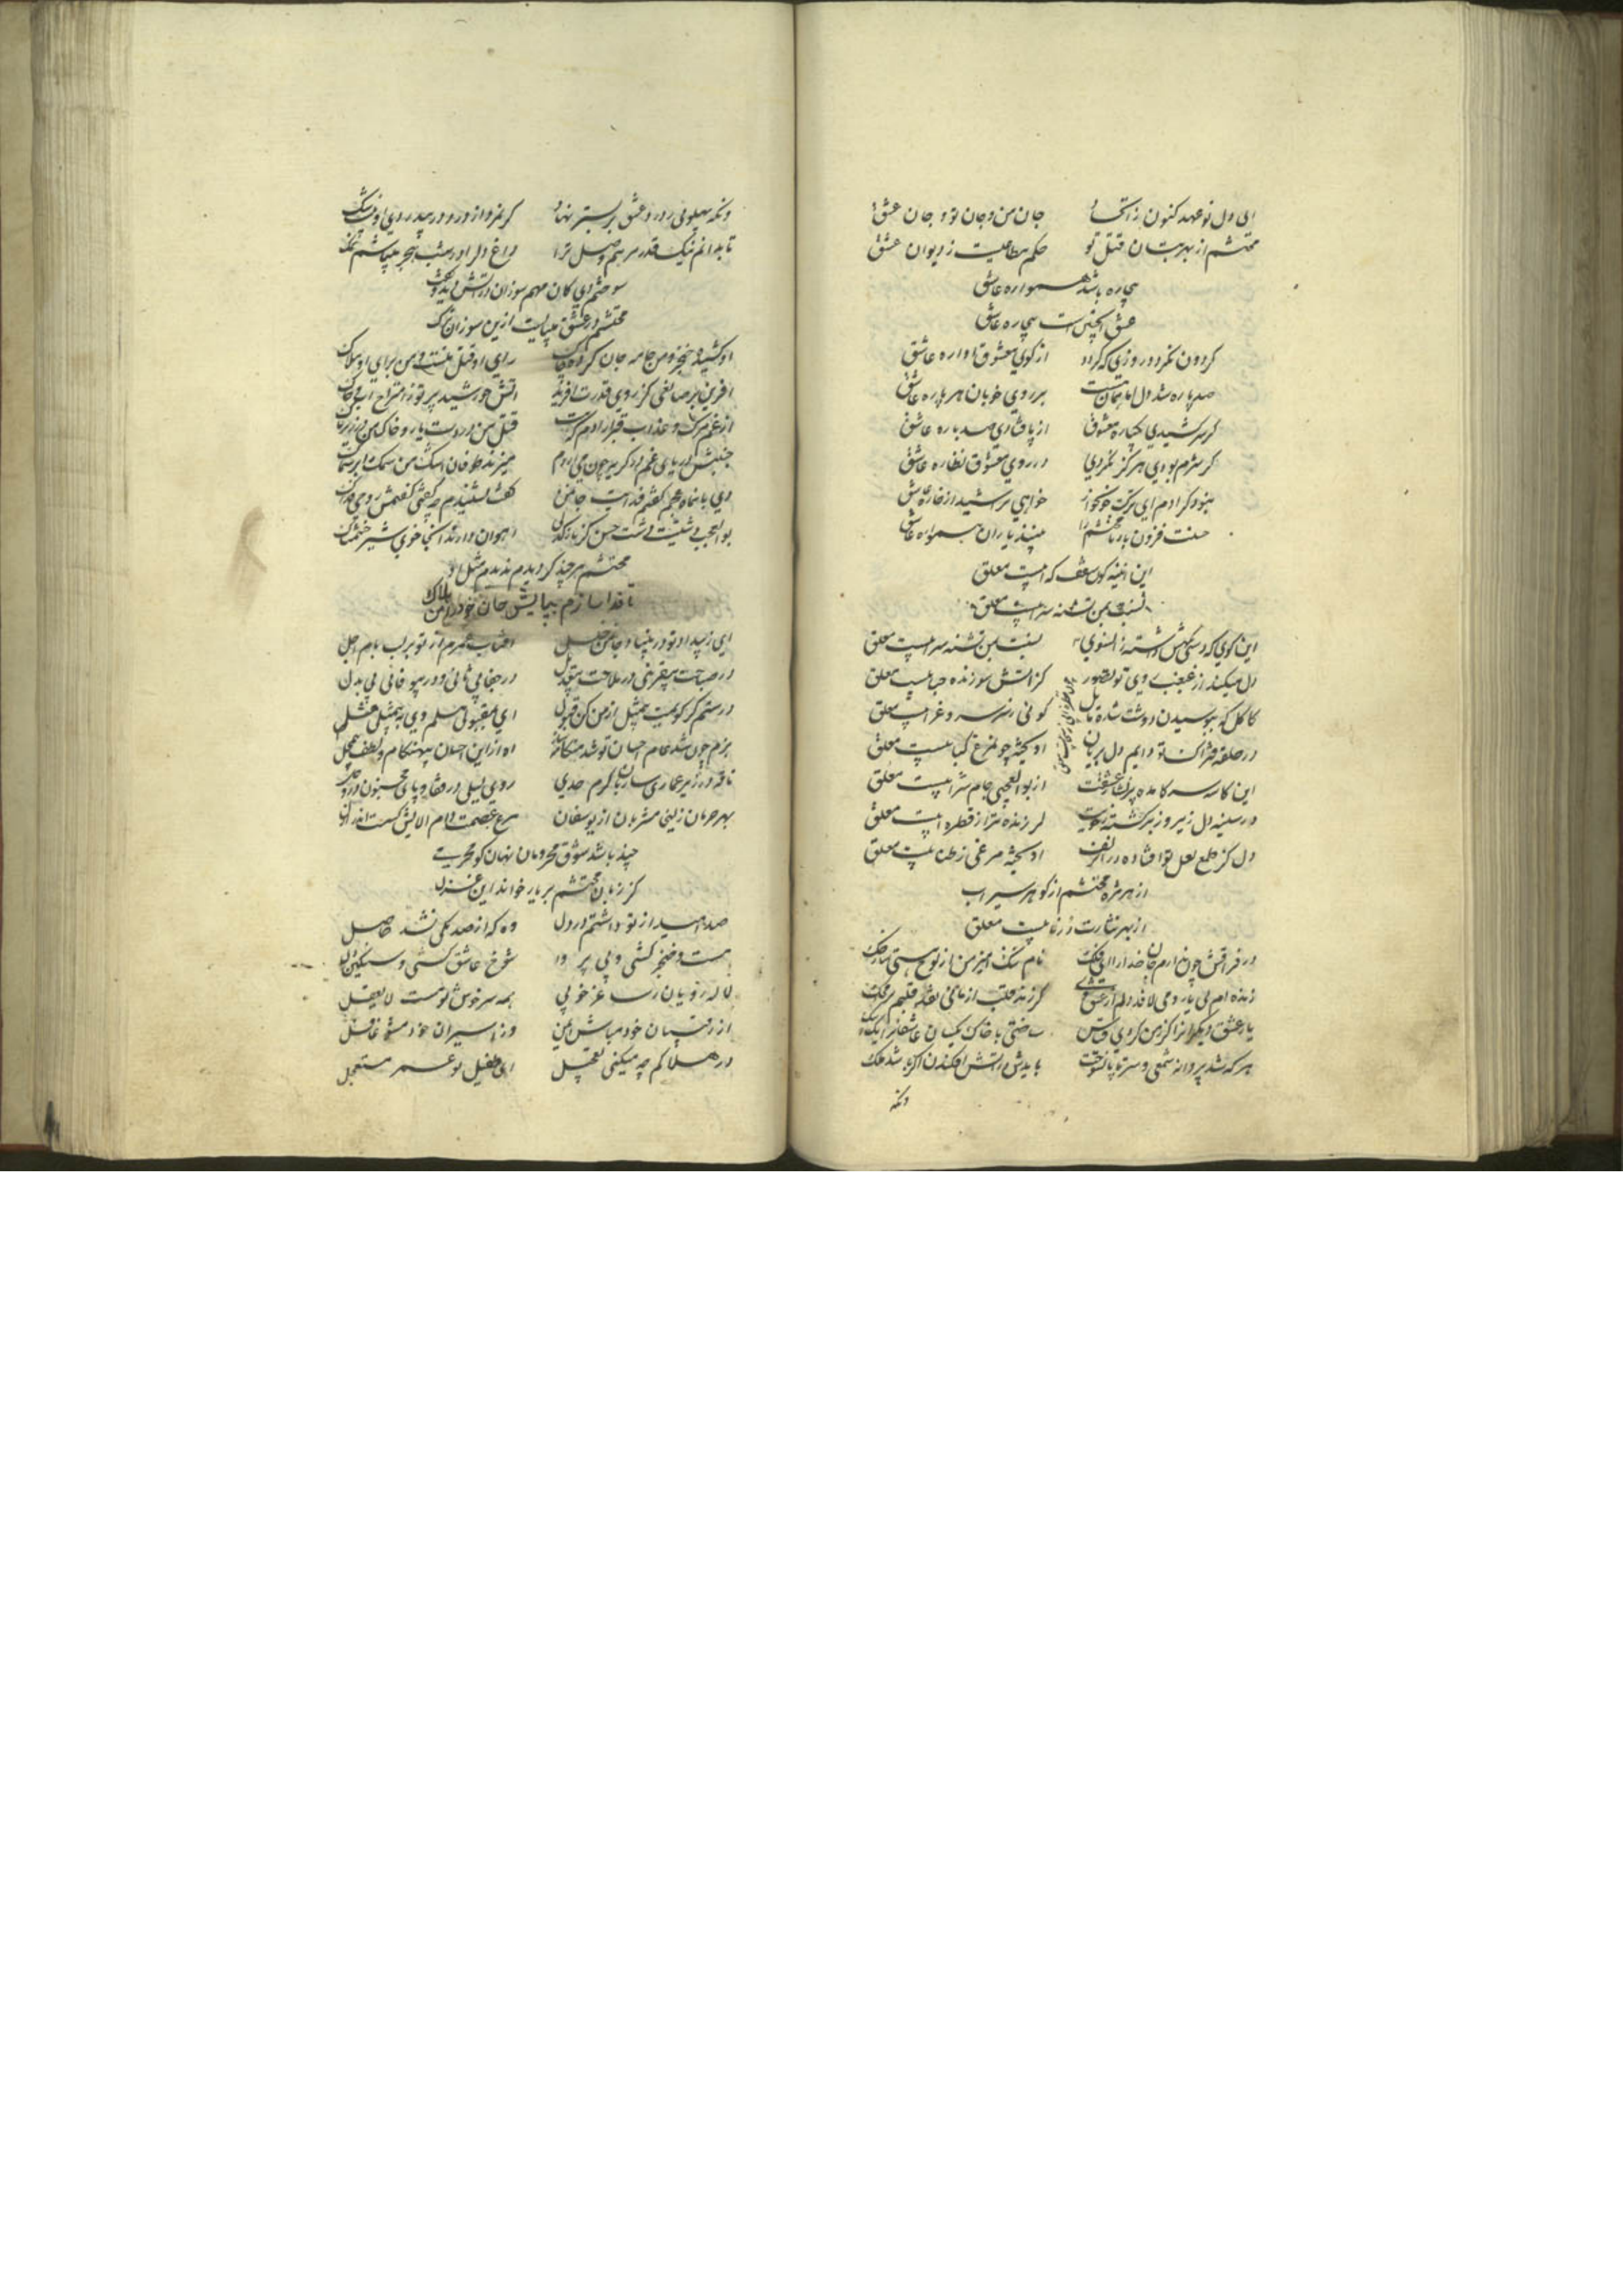 ای دل نو عهد کنون زاتحاد جان من و جان تو و جان عشق
محتشم از بهر بتان قتل تو حکم مطاعیست ز دیوان عشق
بیچاره باشد همواره عاشق
عشق اینچنین است بیچاره عاشق
گردون نگردد روزی که گردد از کوی معشوق آواره عاشق
صد پاره شد دل اما همان هست بر روی خوبان هر پاره عاشق
گر سرکشیدی یکباره معشوق از پا فتادی صد باره عاشق
گر شرم بودی هرگز نکردی در روی معشوق نظاره عاشق
نبود گر آدم ای ترک خونخوار خواهی تراشید از خاره عاشق
حسنت فزون باد تا محتشم را بینند یاران همواره عاشق
این آینه گون سقف که آبیست معلق
نسبت بمن تشنه سرابیست معلق
این کوی که دستی کهنش داشته زانسوی نسبت بمن تشنه سرابیست معلق
دل میکند از غبغب وی تو تصور کز آتش سوزنده حبابیست معلق
کاکل که ببوسیدن دوشت شده مایل گوئی ز سر سرو غرابیست معلق
در حلقه فتراک تو دایم دل بریان آویخته چو مرغ کبابیست معلق
این کاسه سر کامده پر نشأه عشقت از بوالعجبی جام شرابیست معلق
در سینه دل زیر و زبر گشته ز خویت لرزنده تر از قطره آبیست معلق
دل کز طمع لعل تو افتاده در آن زلف آویخته مرغی ز طنابیست معلق
از هر مژه محتشم از گوهر سیراب
از بهر نثارت در نابیست معلق
در فراقش چون ندارم جان خدا را ای فلک نام ننگ آمیز من از لوح هستی ساز حک
زنده ام بی یار و می لافد دلم از عشق وی
یار عشق دیگرانرا گر ز من کردی قیاس ساختی با خاک یکسان عاشقانرا یک بیک
هر که شد پروانه شمعی و سر تا پا نسوخت بایدش در آتش افکندن اگر باشد ملک
ونکه
ونکه پهلوئی ز درد عشق بر بستر نهاد
تا بدانم نیک قدر مرهم وصل ترا داغ دل را در شب هجر
سوختم دی کان مهم سوزان در آتش دید و گفت
محتشم در عشق بیتابست ازین سوزان ترک
او کشیده خنجر و من جامه جان کرده چاک رای او قتل منست و من برای او هلاک
آفرین بر صانعی کز روی قدرت آفرید آتش خورشید پرتو ز امتزاج آب و خاک
از غم مرگ و عذاب قبر آزادم که هست قتل من در دست یار و خاک من در زیر تاک
جنبش دریای غم در گریه چون می آردم میزند طوفان اشک من سمک را بر سماک
دی بآنماه عجم گفتم فدایت جان من گفت نشنیدم چه گفتی گفتمش روحی فداک
بوالعجب دشتیست دشت حسن کز نازک دلی آهوان دارند آنجا خوی شیر خشمناک
محتشم هر چند گردیدم ندیدم مثل او
تا فدا سازم بپایش جان خود را من هلاک
ای ز بیداد تو در بنیاد جان من خلل آفتاب عمرم از تو بر لب بام اجل
در صباحت بی قرینی در ملاحت بی بدل در جفا بی ثانی و در بیوفائی بی بدل
ای بمقبولی مسلم وی به بیمثلی مثل
بزم چون شد عام احسان تو شد هنگامه آه ازین احسان بی هنگام و لطف بی محل
ناقه در زیر عماری ساربان گرم حدی روی لیلی در قفا و پای مجنون در وحل
بهر حرمان زلیخا مشربان از یوسفان
چند باشد شوق محرومان نهان کو محرمی
کز زبان محتشم بر یار خواند این غزل
صد امید از تو داشتم در دل وه که از صد یکی نشد حاصل
مست و خنجر کشی و بی پروا شوخ و عاشق کشی و سنگین دل
لاله رویان ز ساغر خوبی همه سرخوش تو مست لا یعقل
از رقیبان خود مباش ایمن وز اسیران خود مشو غافل
در هلاکم چه میکنی تعجیل ای طفیل تو عمر مستعجل